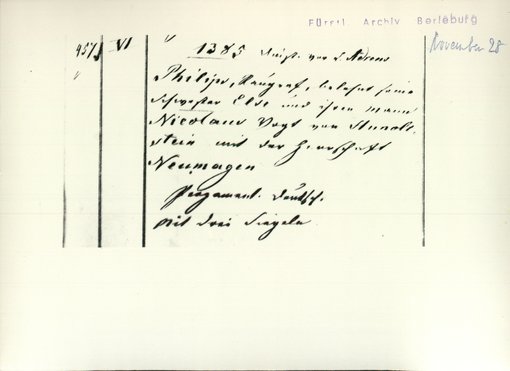 Fürstl. Archiv Berleburg
November 28
957 VI
1385 Dinst. vor S. Andreas
Philips, Raugraf, belehnt seine
Schwester Else und ihren Mann
Nicolaus Vogt von Hunolt-
stein mit der Herrschaft
Neumagen
Pergament. Deutsch.
mit drei Siegeln.